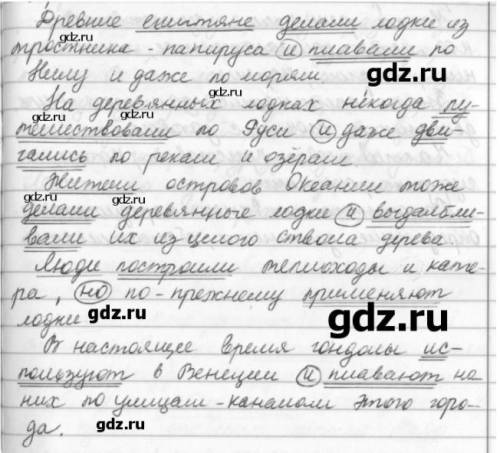 Древние египтяне делали лодки из
тростника - папируса и плавали по
Нилу и даже по морям
На деревянных лодках некогда пу-
тешествовали по Руси и даже дви-
гались по рекам и озёрам
Жители островов Океании тоже
делали деревянные лодки и выдалбли-
вали их из целого ствола дерева
Люди построили теплоходы и кате-
ра, но по-прежнему применяют
лодки
В настоящее время гондолы ис-
пользуют в Венеции и плавают на
них по улицам - каналам этого горо-
да.
gdz.ru
gdz.ru
gdz.ru
gdz.ru
gdz.ru
gdz.ru
gdz.ru
gdz.ru
gdz.ru